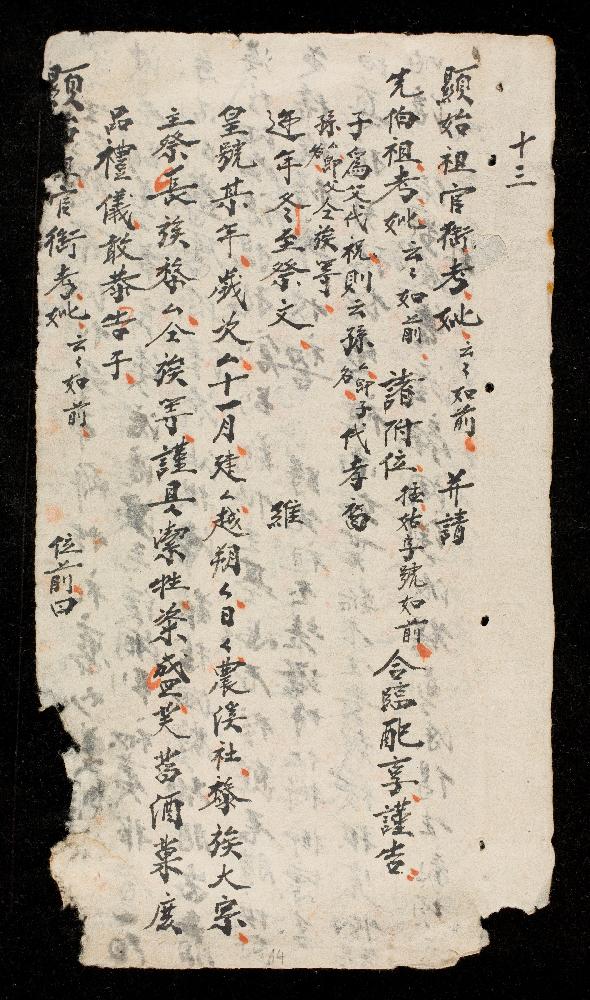 十三
顯始祖官銜考妣云々如前 并請
先伯祖考妣云々如前 諸附位 姑字號如前 合臨配享謹告
子爲父代祝則云孫 子代孝
孫 父仝族等
遞年冬至祭文 維
皇號某年歲次 十一月建 越朔 日 農溪社 黎族大宗
主祭長族黎 仝族等謹具 牲粢盛芙 酒菓庶
品禮儀敢恭告于
顯 官銜考妣云々如前 位前曰
14